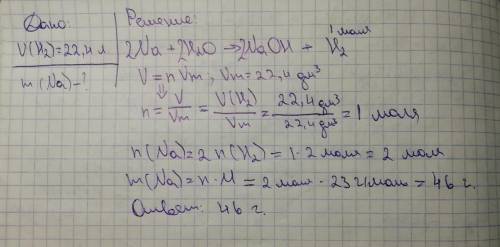 Дано:
V(H₂)=22,4 л
m(Na)-?
Решение:
2Na + 2H₂O → 2NaOH + H₂
1 моль
V = n · Vm, Vm = 22,4 дм³
⇓
n = V/Vm = V(H₂)/Vm = 22,4 дм³/22,4 дм³ = 1 моль
n(Na) = 2 n(H₂) = 1·2 моль = 2 моль
m(Na) = n · M = 2 моль · 23 г/моль = 46 г.
Ответ: 46 г.